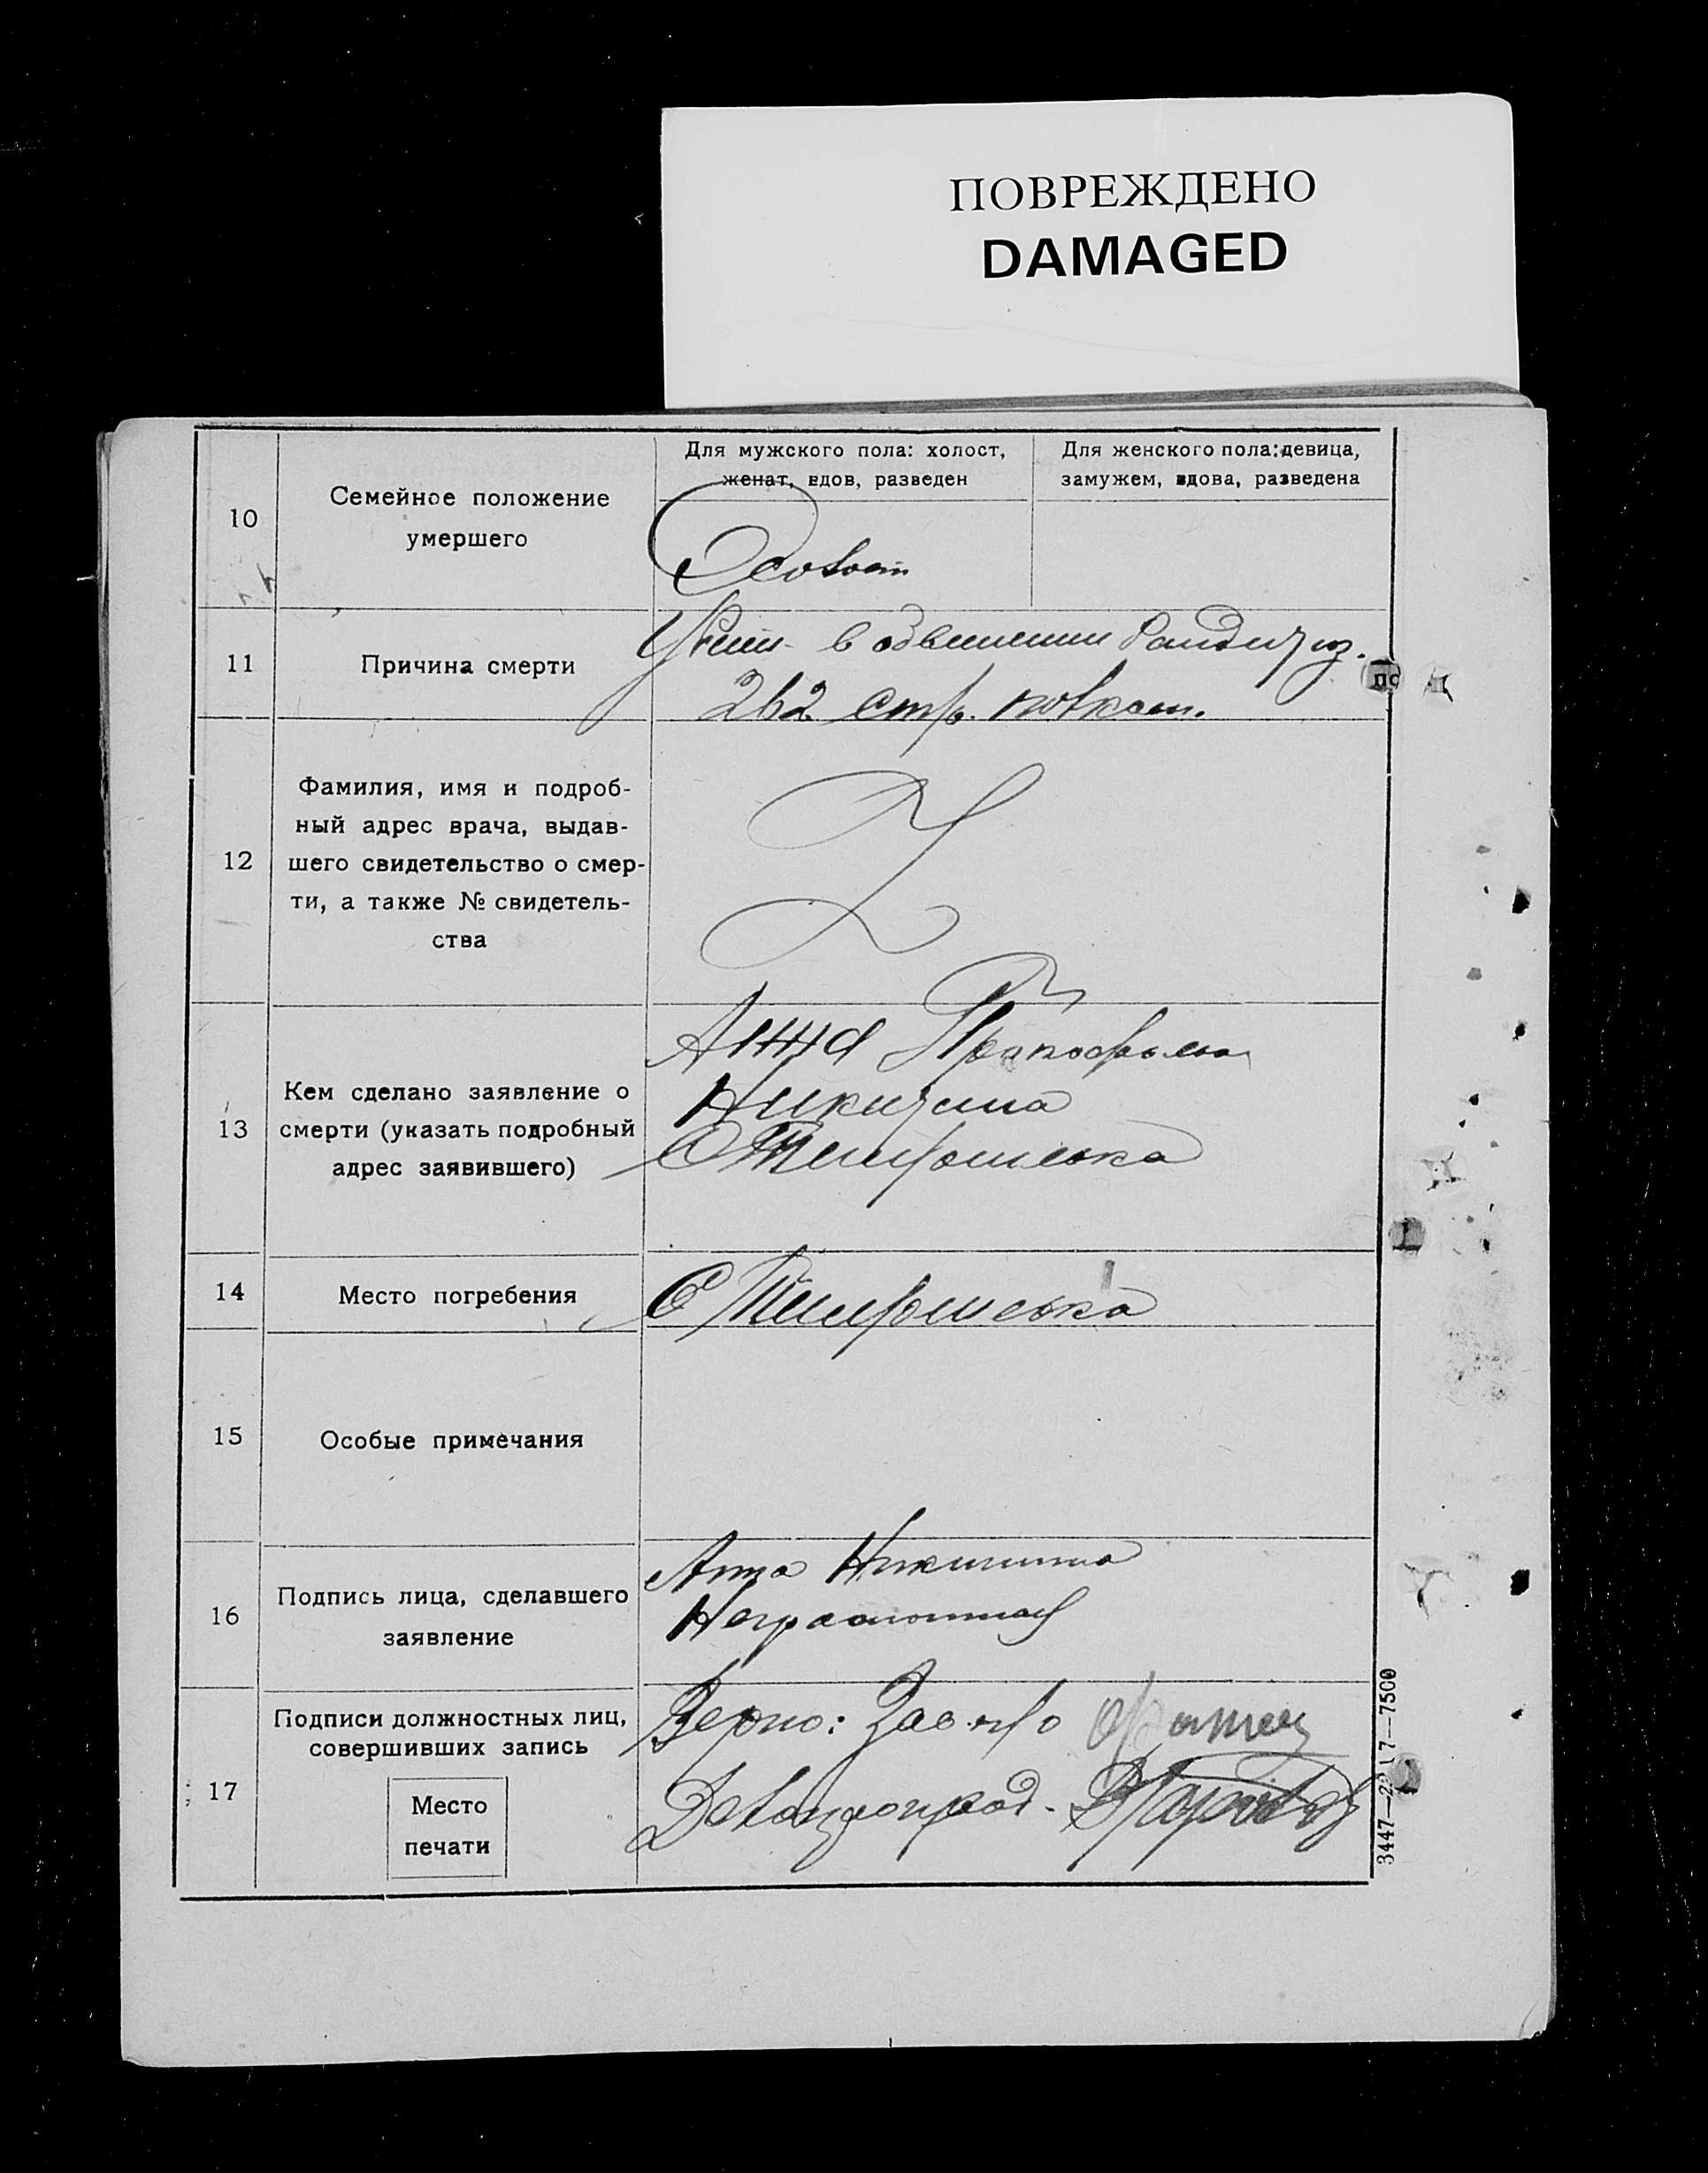 ПОВРЕЖДЕНО
DAMAGED
10
Семейное положение
умершего
Для мужского пола: холост,
женат, вдов, разведен
Для женского пола: девица,
замужем, вдова, разведена
Холост
11
Причина смерти
в
262 стр. полком.
по
12
Фамилия, имя и подроб-
ный адрес врача, выдав-
шего свидетельство о смер-
ти, а также № свидетель-
ства
13
Кем сделано заявление о
смерти (указать подробный
адрес заявившего)
Анна Прокофьевна
Никитина
С Тимрошевка
14
Место погребения
С Тимрошевка
15
Особые примечания
16
Подпись лица, сделавшего
заявление
Анна Никитина
Неграмотная
17
Подписи должностных лиц,
совершивших запись
Место
печати
Верно:
Делопроизвод.
3447—2217—7500